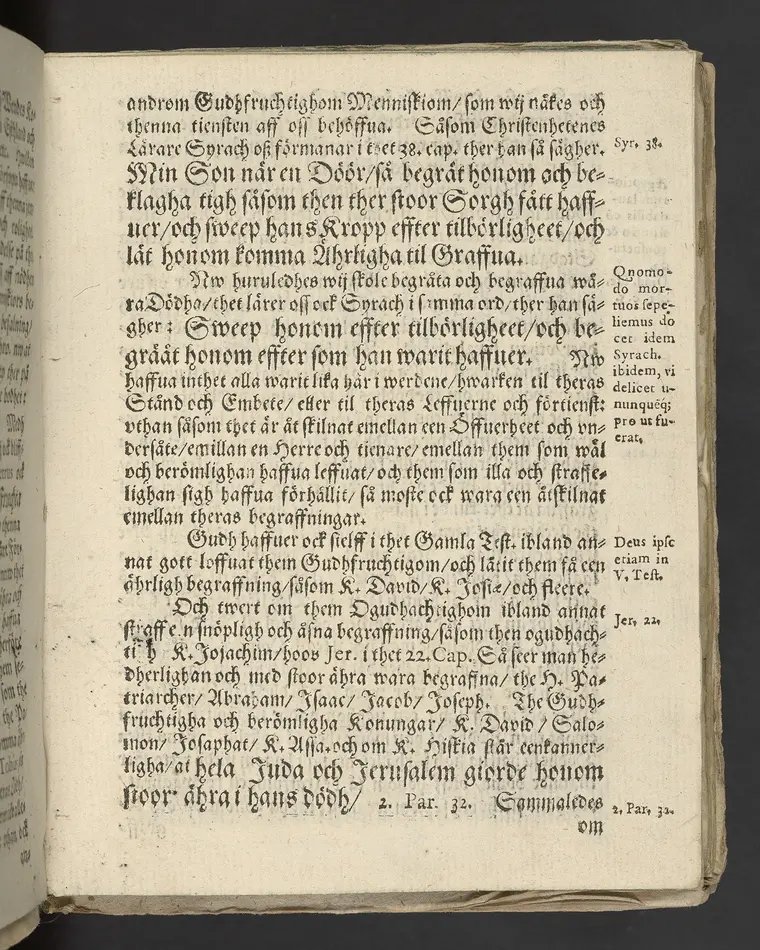 androm Gudhfruchtighom Menniskiom/ som wij näkes och
thenna tiensten aff oss behöffua. Såsom Christenhetenes
Lärare Syrach oß förmanar i thet 38. cap. ther han så sägher.
Syr. 38.
Min Son när en Döör/så begråt honom och be-
klagha tigh såsom then ther stoor Sorgh fått haff-
uer/och sweep hans Kropp effter tilbörligheet/och
lät honom komma Ährligha til Graffua.
Nw huruledhes wij skole begråta och begraffua wå-
ra Dödha/thet lärer oss ock Syrach i samma ord/ther han sä-
gher: Sweep honom effter tilbörligheet/och be-
gråät honom effter som han warit haffuer. Nw
Quomo-
do mor-
tuos sepe-
liemus do
cet idem
Syrach.
ibidem, vi
delicet u-
nunquēq;
pro ut fu-
erat.
haffua inthet alla warit lika här i werdene/hwarken til theras
Stånd och Embete/ eller til theras Leffuerne och förtienst:
vthan såsom thet är åtskilnat emellan een Öffuerheet och vn-
dersåte/emillan en Herre och tienare/emellan them som wäl
och berömlighan haffua leffuat/och them som illa och straffe-
lighan sigh haffua förhållit/ så moste ock wara een åtskilnat
emellan theras begraffningar.
Gudh haffuer ock sielff i thet Gamla Test. ibland an-
nat gott loffuat them Gudhfruchtigom/och låtit them få een
ährligh begraffning/såsom K. David/K. Josiæ/och fleere.
Deus ipse
etiam in
V. Test.
Och twert om them Ogudhachtighom ibland annat
straff een snöpligh och åsna begraffning/såsom then ogudhach-
tigh K. Jojachim/hoos Jer. i thet 22. Cap. Så seer man he-
Jer. 22.
dherlighan och med stoor ähra wara begraffna/ the H. Pa-
triarcher/ Abraham/ Isaac/ Jacob/ Joseph. The Gudh-
fruchtigha och berömligha Konungar/ K. David/ Salo-
mon/ Josaphat/ K. Assa. och om K. Hiskia står eenkanner-
ligha/at hela Juda och Jerusalem giorde honom
stoor ähra i hans dödh/ 2. Par. 32. Sammaledes
2. Par. 32.
om